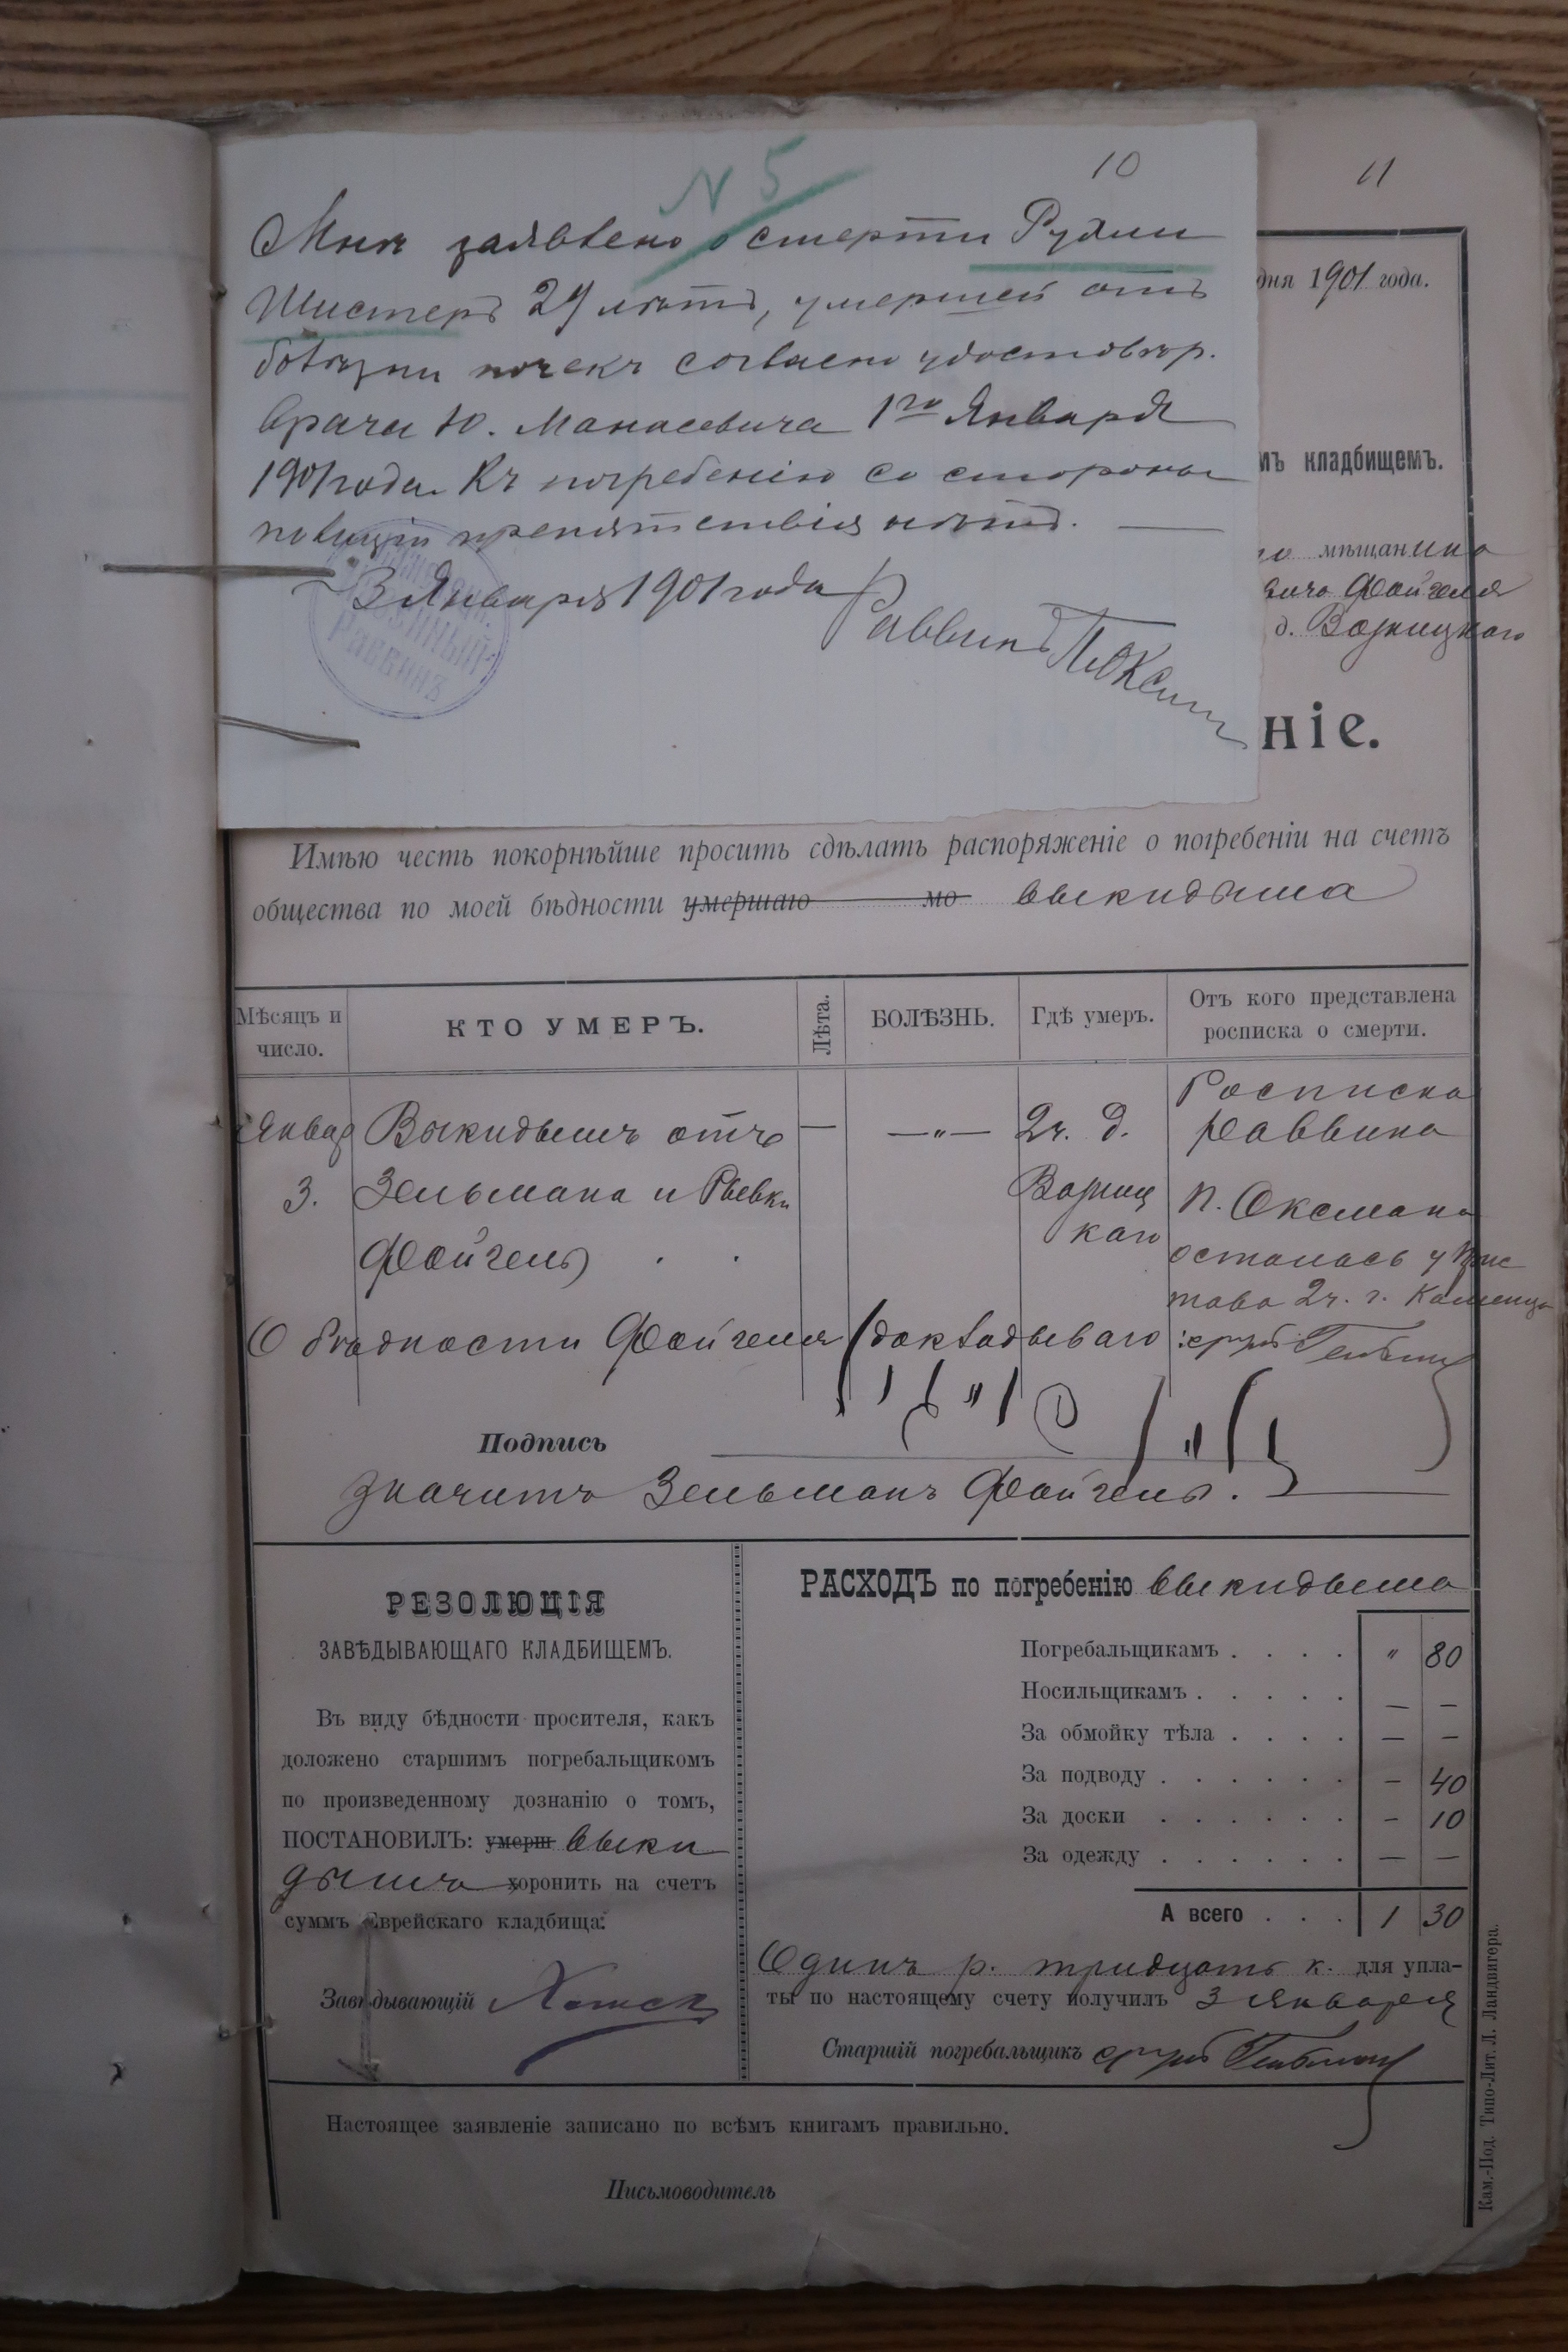 N 5
10
11
Мнѣ заявлено о смерти Рухли
Шистеръ 24 лѣтъ, умершей отъ
болѣзни почекъ согласно удостовѣр.
врача Ю. Манасевича 1го Января
1901 года. Къ погребенію со стороны
полиціи препятствія нѣтъ. —
3 Января 1901 года
Раввинъ П. Оксман
Раввинъ
дня 1901 года.
мъ кладбищемъ.
го мѣщанина
вича Файгеля
д. Возницкаго
ніе.
Имѣю честь покорнѣйше просить сдѣлать распоряженіе о погребеніи на счетъ
общества по моей бѣдности умершаго мо выкидыша
Мѣсяцъ и число.
КТО УМЕРЪ.
Лѣта.
БОЛѢЗНЬ.
Гдѣ умеръ.
Отъ кого представлена росписка о смерти.
Январ Выкидышъ отъ — —"— 2ч. д. Росписка раввина
3. Зельмана и Ривки Возницкаго П. Оксмана
Файгель осталась у Пристава 2ч. г. Каменца
О бѣдности Файгеля докладываю
Подпись
значитъ Зельманъ Файгель.
РЕЗОЛЮЦІЯ
ЗАВѢДЫВАЮЩАГО КЛАДБИЩЕМЪ.
Въ виду бѣдности просителя, какъ
доложено старшимъ погребальщикомъ
по произведенному дознанію о томъ,
ПОСТАНОВИЛЪ: умерш выки
дыша хоронить на счетъ
суммъ Еврейскаго кладбища.
Завѣдывающій
РАСХОДЪ по погребенію выкидыша
Погребальщикамъ . . . . " 80
Носильщикамъ . . . . . — —
За обмойку тѣла . . . . — —
За подводу . . . . . . — 40
За доски . . . . . . — 10
За одежду . . . . . . — —
А всего . . . 1 30
Одинъ р. тридцать к. для упла-
ты по настоящему счету получилъ 3 Января
Старшій погребальщикъ
Настоящее заявленіе записано по всѣмъ книгамъ правильно.
Письмоводитель
Кам.-Под. Типо-Лит. Л. Ландвигера.